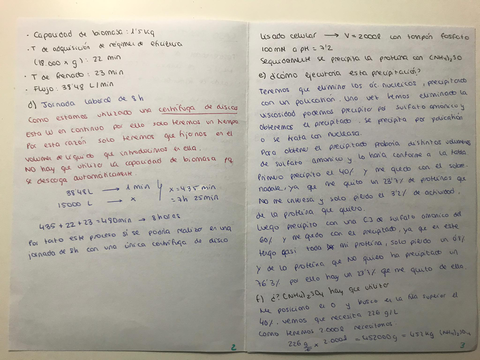 · Capacidad de biomasa: 1'5 kg
· T de adquisición de régimen de
(18000 x g): 22 min
· T de frenado: 23 min
· Flujo: 34'48 L/min
d) Jornada laboral de 8h
Como estamos utilizando una centrífuga de discos
esta va en continuo por ello solo tenemos un tiempo
Por esta razón solo tenemos que fijarnos en el
volumen de líquido que introducimos en ella.
No hay que utilizar la capacidad de biomasa pq
se descarga automáticamente
34'48 L → 1 min
15000 L → x
x = 435 min
= 7h 25min
435 + 22 + 23 = 480 min → 8 horas
Por tanto este proceso sí se podría realizar en una
jornada de 8h con una única centrífuga de discos
2
lisado celular → V = 2000l con tampón fosfato
100 mM a pH = 7'2
Seguidamente se precipita la proteína con (NH4)2SO
e) ¿Cómo ejecutaría esta precipitación?
Tenemos que eliminar los ác nucleicos, precipitado
con un policatión. Una vez tenemos eliminado la
viscosidad podemos precipitar por sulfato amónico y
obtenemos el precipitado. Se precipita por policatión
o se trata con nucleasa.
Para obtener el precipitado probaría distintos volúmenes
de sulfato amónico y lo haría conforme a la tabla
Primero precipito el 40% y me quedo con el sobre
nadante, ya que me quito un 23'7% de proteínas que
no me interesa y solo pierdo el 3'2% de actividad
de la proteína que quiero.
Luego precipito con una [] de sulfato amónico del
60% y me quedo con el precipitado, ya que es este
tengo casi toda mi proteína, solo pierdo un
y de la proteína que NO quiero ha precipitado un
76'3% por ello hay un 23'7% que me quito de ella
f) ¿? (NH4)2SO4 hay que utilizar
Me posiciono el 0 y busco en la fila superior el
40%. vemos que necesito 226 g/L
como tenemos 2000L necesitamos
226 g/L x 2.000L = 452000g = 452 kg (NH4)2SO4
3